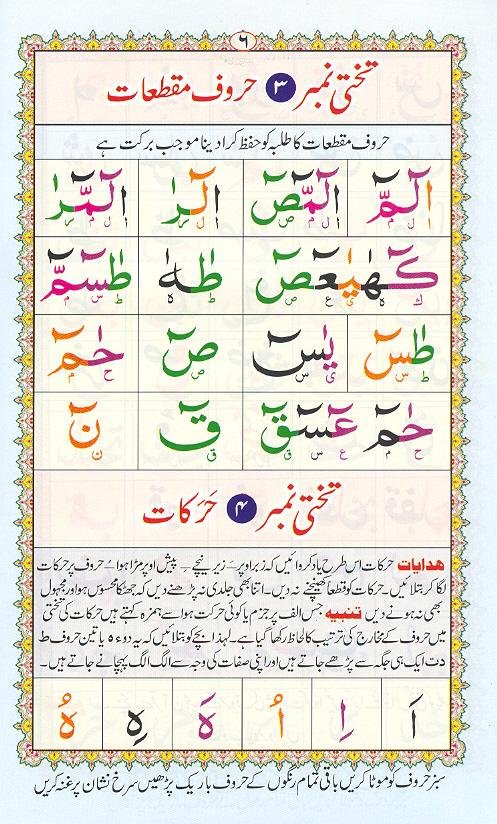 ۶
تختی نمبر ۳ حروف مقطعات
حروف مقطعات کا طلبہ کو حفظ کرا دینا موجب برکت ہے
الٓمّٓ الٓمّٓصٓ الٓرٰ الٓمّٓرٰ
كٓهٰيٰعٓصٓ طٰهٰ طٰسٓمّٓ
طٰسٓ يٰسٓ صٓ حٰمٓ
حٰمٓ عٓسٓقٓ قٓ نٓ
تختی نمبر ۴ حَرَکات
ھدایات حرکات اس طرح یاد کروائیں کہ زبر اوپر۔ زیر نیچے۔ پیش اوپر مڑا ہوا۔ حروف پر حرکات
لگا کر بتلائیں۔ حرکات کو قطعاً کھینچنے نہ دیں۔ اتنا بھی جلدی نہ پڑھنے دیں کہ جھٹکا محسوس ہو اور مجہول
بھی نہ ہونے دیں تنبیہ جس الف پر جزم یا کوئی حرکت ہو اسے ہمزہ کہتے ہیں حرکات کی تختی
میں حروف کے مخارج کی ترتیب کا لحاظ رکھا گیا ہے۔ لہذا بچے کو بتلائیں کہ یہ دو ء ہ یا تین حروف ط
د ت ایک ہی جگہ سے پڑھے جاتے ہیں اور اپنی صفات کی وجہ سے الگ الگ پہچانے جاتے ہیں۔
اَ اِ اُ هَ هِ هُ
سبز حروف کو موٹا کریں باقی تمام رنگوں کے حروف باریک پڑھیں سرخ نشان پر غنہ کریں